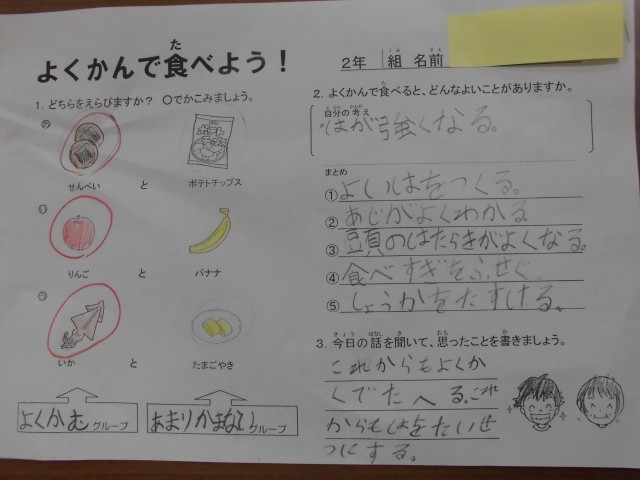 よくかんで食べよう！
2年 組 名前
1. どちらをえらびますか？ ○でかこみましょう。
せんべい と ポテトチップス
りんご と バナナ
いか と たまごやき
よくかむグループ
あまりかまないグループ
2. よくかんで食べると、どんなよいことがありますか。
自分の考え
はが強くなる。
まとめ
①よいはをつくる。
②あじがよくわかる
③頭のはたらきがよくなる。
④食べすぎをふせぐ。
⑤しょうかをたすける。
3. 今日の話を聞いて、思ったことを書きましょう。
これからもよくか
んでたべる。これ
からもはをたいせ
つにする。